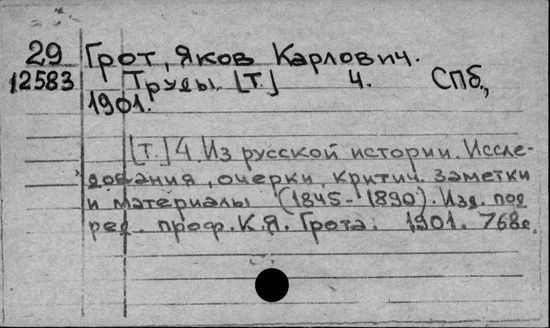 29 Грот, Яков Карлович.
12583 Труды. [Т.] 4. СПб.,
1901.
[Т.] 4. Из русской истории. Иссле-
дования, очерки, критич. заметки
и материалы (1845-1890). Изд. под
ред. проф. К.Я. Грота. 1901. 768с.